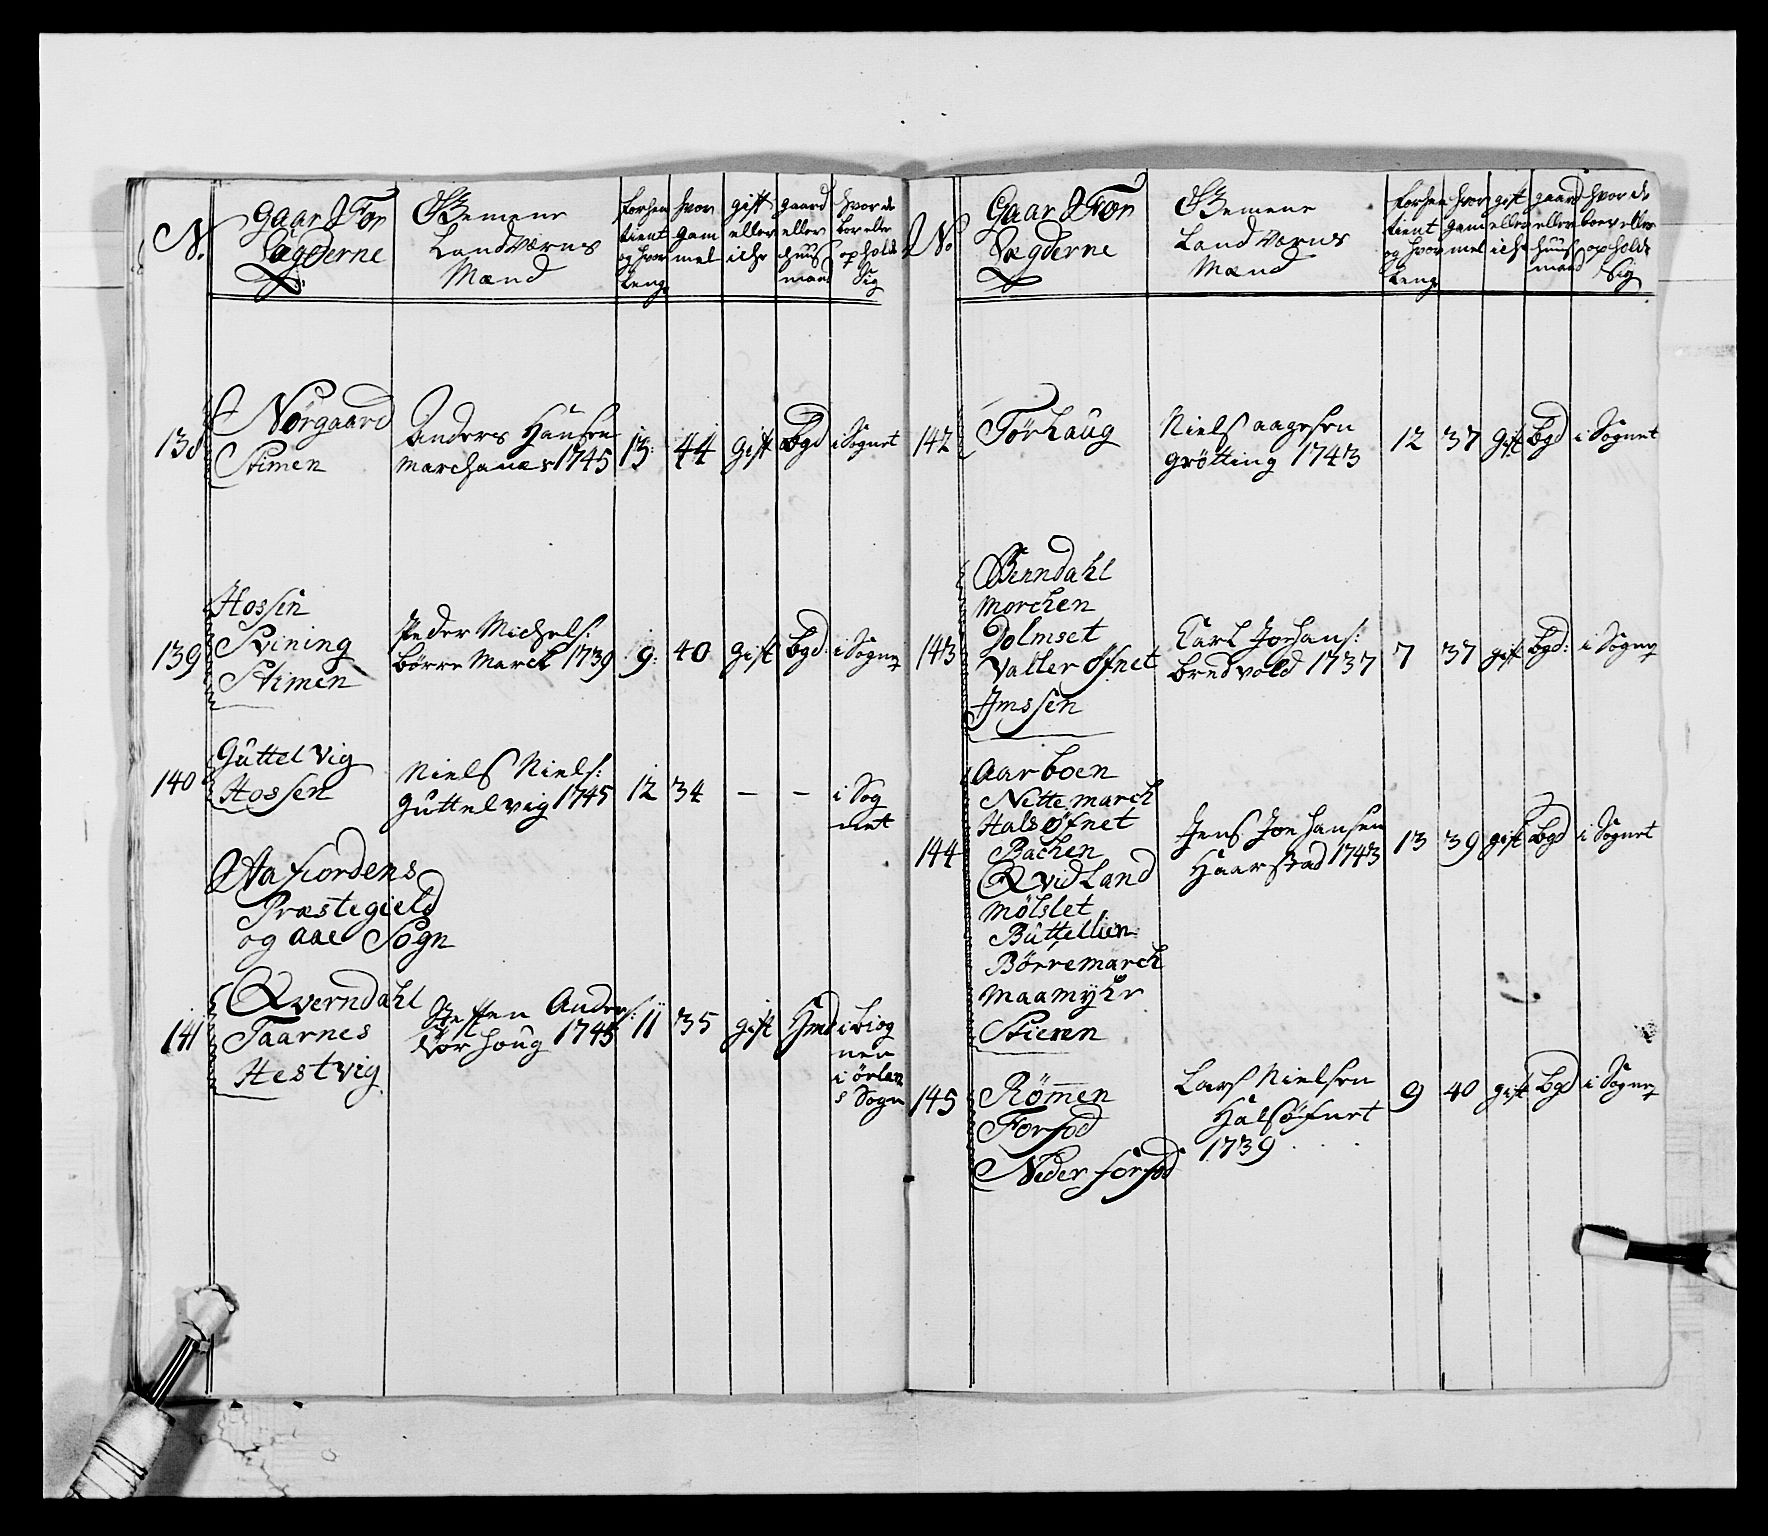 No.
Gaar J For
Lægderne
Gemene
Land Værns
Mænd
forhen
tient
og hvor
leng
hvor
gam
mel
gift
eller
icke
gaard
eller
huus
mand
hvor de
bor eller
opholde
Sig
138
Nørgaard
Stimen
Anders Hansen
Marchanes 1745
13:
44
gift
Bgd
i Sognet
139
Hossen
Svining
Stimen
Peder Michels:
Børre March 1739
9:
40
gift
bgd:
i Sogn
140
Guttelvig
Hossen
Niels Niels:
Guttelvig 1745
12
34
—
—
i Sog
net
Aafiordens
Præstegield
og aae Sogn
141
Qverndahl
Taarnes
Hestvig
Steffen Anders:
Dørhoug 1745
11
35
gift
Hmd
i Biog
nen
i ørlan
s Sogn
No
Gaar J For
Lægderne
Gemene
Land Værns
Mænd
forhen
tient
og hvor
leng
hvor
gam
mel
gift
eller
ich
gaard
eller
huus
mand
hvor de
boer eller
opholde
Sig
142
Tørhaug
Niels aagesen
grøtting 1743
12
37
gift
bgd
i Sognet
143
Berndahl
Morchen
Dolmset
Valler Øfnet
Imssen
Carl Johans:
Bredvold 1737
7
37
gift
bgd:
i Sogn
144
Aarboen
Nettemarch
Hals øfnet
Bachen
Qvidland
Mølslet
Buttellien
Børremarch
Maamyhr
Stieren
Jens Johansen
Haarstad 1743
13
39
gift
Bgd
i Sognet
145
Römen
Forfod
Neder forfod
Lars Nielsen
Halsøfnet
1739
9
40
gift
bgd
i Sogn